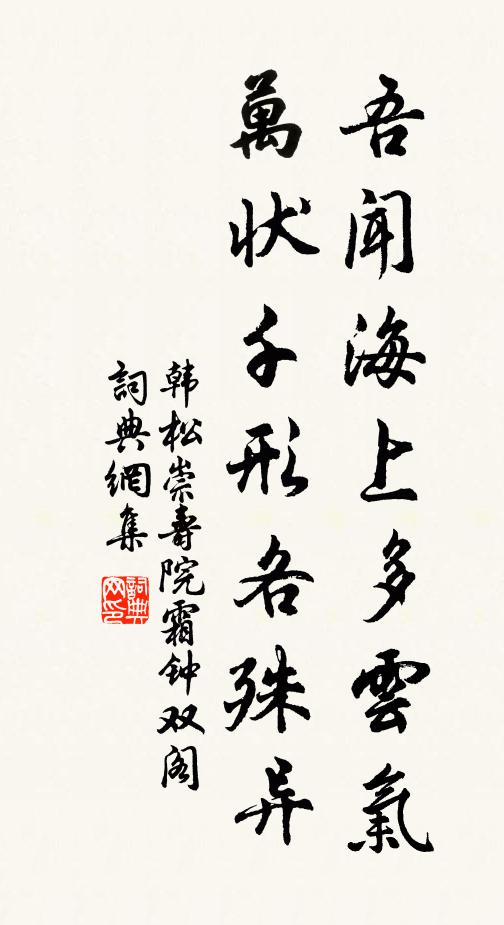 吾闻海上多雲氣
萬状千形各殊异
韩松崇壽院霜钟双阁
詞典網集
詞典
网印